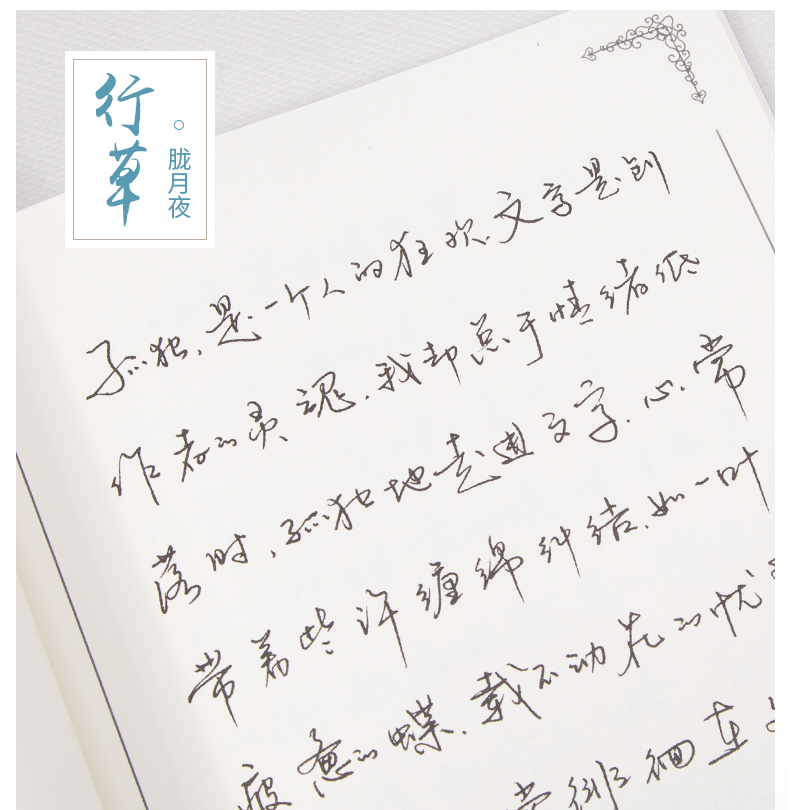 行草
胧月夜
孤独,是一个人的狂欢,文字是刻
作者的灵魂,我却总于情绪低
落时,孤独地走进文字.心,常
常着些许缠绵纠结,如一叶
疲惫的蝶,载不动花的忧
常徘徊在